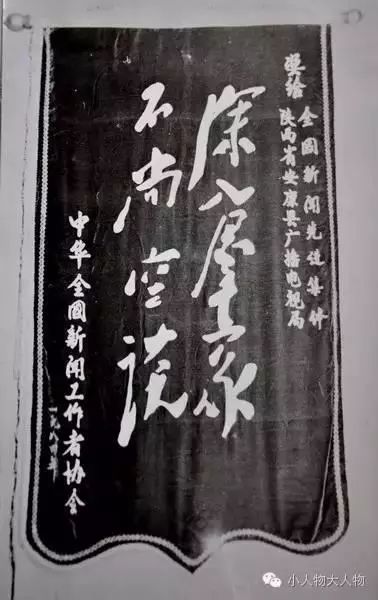 奖给
全国新闻先进集体
陕西省安康县广播电视局
深入群众
不尚空谈
中华全国新闻工作者协会
小人物大人物